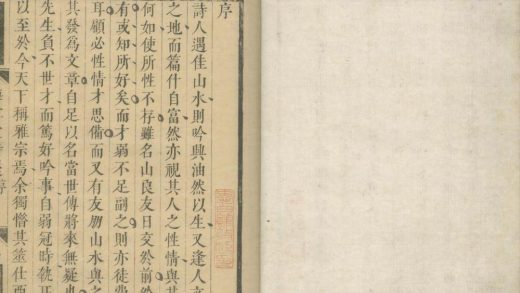 序
詩人遇佳山水則吟興油然以生又逢人
之地而篇什自富然亦視其人之性情與其
何如使所性不存雖名山良友日交於前
有或知所好矣而才弱不足副之則亦徒
耳顧必性情才思備而又有友朋山水與之
其發爲文章自足以名當世傳將來無疑也
先生負不世才而篤好吟事自弱冠時執
以至於今天下稱雅宗焉余獨惜其筮仕西